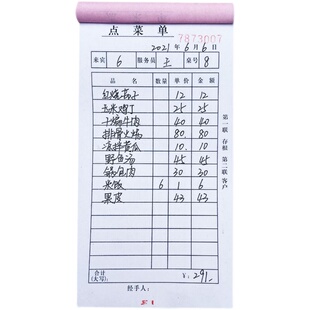 点菜单
7873007
2021年6月6日
来宾 6 服务员 王 桌号 8
品名 数量 单价 金额
红烧茄子 12 12
玉米鸡丁 25 25
干煸牛肉 40 40
排骨火锅 80. 80.
凉拌黄瓜 10. 10.
野鱼汤 45 45
锅包肉 30 30
米饭 6 1 6
果皮 43 43
合计(大写): ¥:291.
经手人:
第一联 存根 第二联 客户